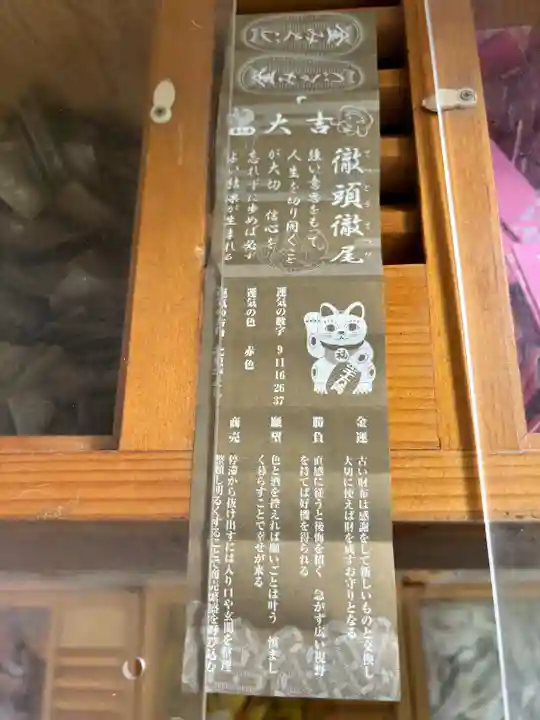 金みくじ
大吉
徹頭徹尾
てっとうてつび
強い意思をもって
人生を切り開くこと
が大切 信心を
忘れずに歩めば必ず
よい結果が生まれる
運気の数字 9 11 16 26 37
運気の色 赤色
金運 古い財布は感謝をして新しいものと交換し
大切に使えば財を成すお守りとなる
勝負 直感に従うと後悔を招く 急がず広い視野
を持てば好機を得られる
願望 色と酒を控えれば願いごとは叶う 慎まし
く暮らすことで幸せが来る
商売 停滞から抜け出すには入り口や玄関を整理
整頓し明るくすることで商売繁盛を呼び込む